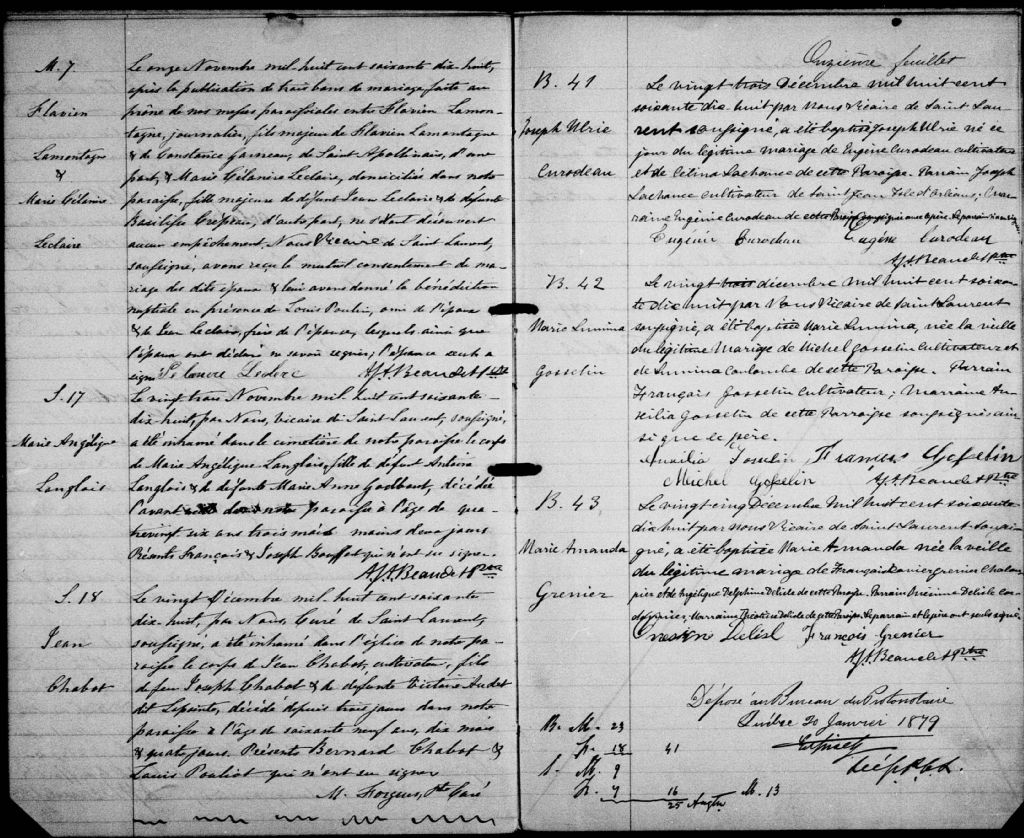 M. 7.
Flavien
Lamontagne
&
Marie Gélanire
Leclaire
Le onze Novembre mil-huit cent soixante dix-huit,
après la publication de trois bans de mariage faite au
prône de nos messes paroissiales entre Flavien Lamon-
tagne, journalier, fils majeur de Flavien Lamontagne
& de Constance Garneau, de Saint Apollinaire, d'une
part, & Marie Gélanire Leclaire, domiciliée dans notre
paroisse, fille majeure de défunt Jean Leclaire & de défunte
Basilisse Crépeau, d'autre part, ne s'étant découvert
aucun empêchement, Nous Vicaire de Saint Laurent,
soussigné, avons reçu le mutuel consentement de ma-
riage des dits époux & leur avons donné la bénédiction
nuptiale en présence de Louis Poulin, ami de l'époux
& de Jean Leclair, frère de l'épouse, lesquels ainsi que
l'époux ont déclaré ne savoir signer; l'épouse seule a
signé. Leclerc AJA Beaudet Ptre
S. 17
Marie Angélique
Langlois
Le vingt trois Novembre mil-huit cent soixante-
dix-huit, par Nous, Vicaire de Saint-Laurent, soussigné,
a été inhumé dans le cimetière de notre paroisse le corps
de Marie Angélique Langlois, fille de défunt Antoine
Langlois & de défunte Marie Anne Godbout, décédée
l'avant notre paroisse à l'âge de qua-
trevingt six ans trois mois moins deux jours
Présents François & Joseph Bouffot qui n'ont su signer.
AJA Beaudet Ptre
S. 18
Jean
Chabot
Le vingt Décembre mil-huit cent soixante
dix-huit, par Nous, Curé de Saint Laurent,
soussigné, a été inhumé dans l'église de notre pa-
roisse le corps de Jean Chabot, cultivateur, fils
de feu Joseph Chabot & de défunte Victoire Audet
dit Lapointe, décédé depuis trois jours dans notre
paroisse à l'âge de soixante neuf ans, dix mois
& quatre jours. Présents Bernard Chabot &
Louis Pouliot qui n'ont su signer
M. Forgues, Ptre Curé
Onzième feuillet
B. 41
Joseph Ulric
Curodeau
Le vingt trois Décembre mil huit cent
soixante dix huit par Nous Vicaire de Saint Lau-
rent soussigné, a été baptisé Joseph Ulric né ce
jour du légitime mariage de Eugène Curodeau cultivateur
et de Célina Lachance de cette Paroisse. Parrain Joseph
Lachance cultivateur de Saint Jean Ile d'Orléans, Mar-
raine Eugénie Curodeau de cette Paroisse soussignée avec le père
Eugénie Curodeau Eugène Curodeau
AJA Beaudet Ptre
B. 42
Marie Lumina
Gosselin
Le vingt trois décembre mil huit cent soixan-
te dix huit par Nous Vicaire de Saint Laurent
soussigné, a été baptisée Marie Lumina, née la veille
du légitime mariage de Michel Gosselin Cultivateur et
de Lumina Coulombe de cette Paroisse. Parrain
François Gosselin Cultivateur; Marraine Au-
xilia Gosselin de cette Parroisse soussignés ain-
si que le père.
Auxilia Gosselin François Gosselin
Michel Gosselin AJA Beaudet Ptre
B. 43
Marie Amanda
Grenier
Le vingt cinq Décembre mil huit cent soixante
dix huit par Nous Vicaire de Saint Laurent soussi-
gné, a été baptisée Marie Amanda née la veille
du légitime mariage de François Xavier Grenier Chalou-
pier et de Angélique Delphine Delisle de cette Paroisse. Parrain Onésime Delisle Cor-
donnier; Marraine Delisle de cette Paroisse. Le parrain et le père ont seuls signé
Onésime Delisl François Grenier
AJA Beaudet Ptre
Déposé au Bureau du Protonotaire
Québec 20 Janvier 1879
Dép. P.C.S.
B. M. 23
F. 18 41
S. M. 9
F. 7 16
25 M. 13